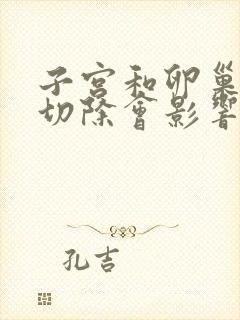 子宮和卵巢
切除會影響
孔吉